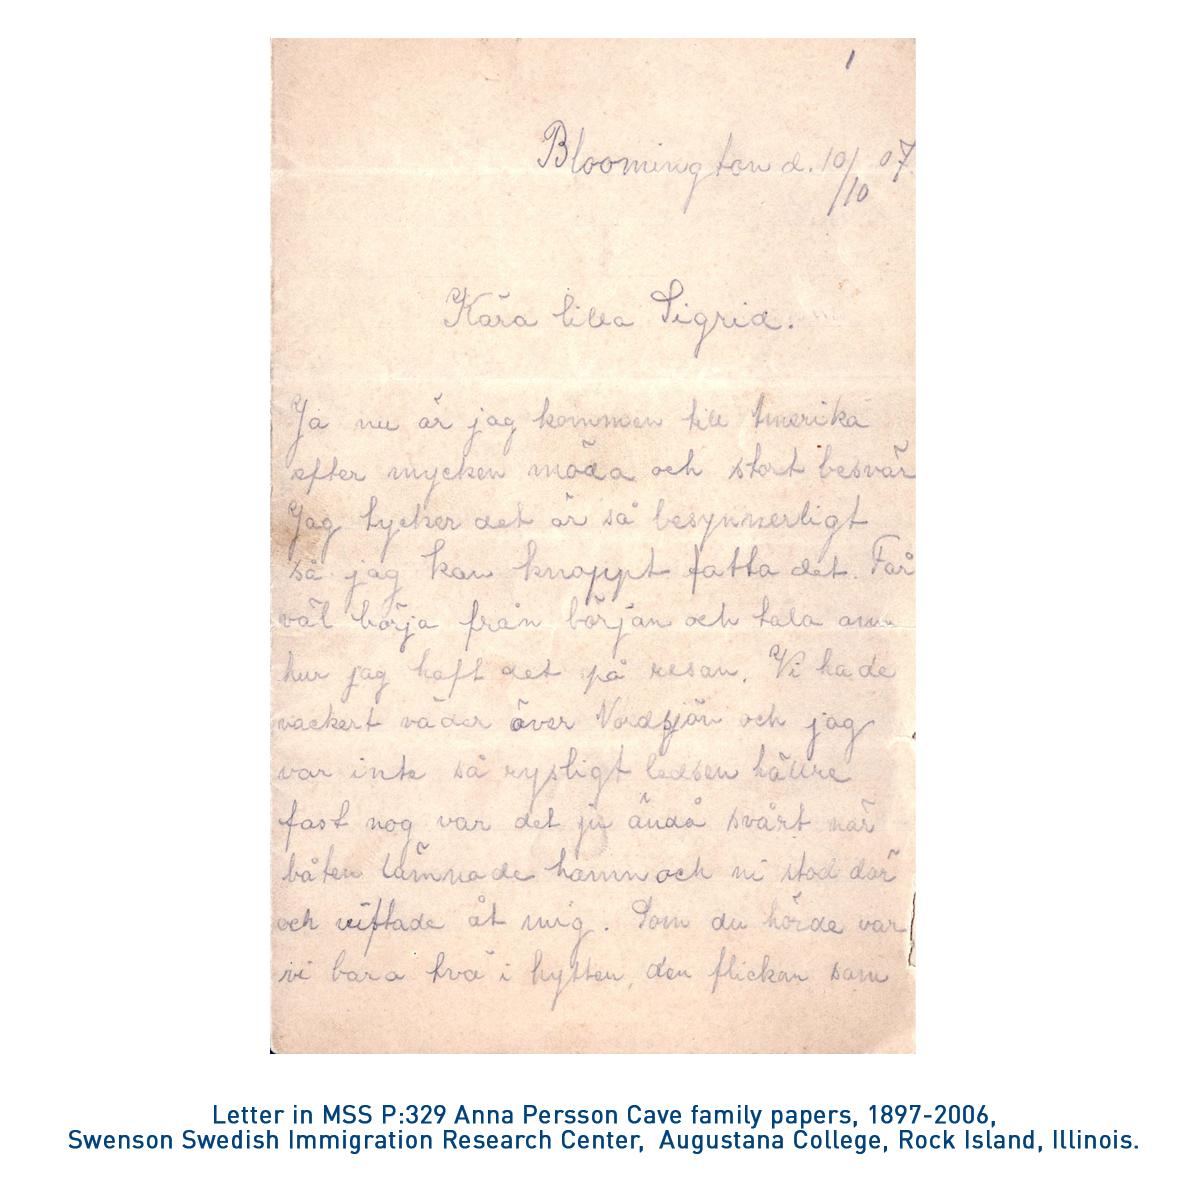 1
Bloomington d. 10/10 07.
Kära lilla Sigrid.
Ja nu är jag kommen till Amerika
efter mycken möda och stort besvär
Jag tycker det är så besynnerligt
så jag kan knappt fatta det. Får
väl börja från början och tala om
hur jag haft det på resan. Vi hade
vackert väder över Nordsjön och jag
var inte så rysligt ledsen hällre
fast nog var det ju ändå svårt när
båten lämnade hamn och ni stod där
och viftade åt mig. Som du hörde var
vi bara två i hytten, den flickan som
Letter in MSS P:329 Anna Persson Cave family papers, 1897-2006,
Swenson Swedish Immigration Research Center, Augustana College, Rock Island, Illinois.